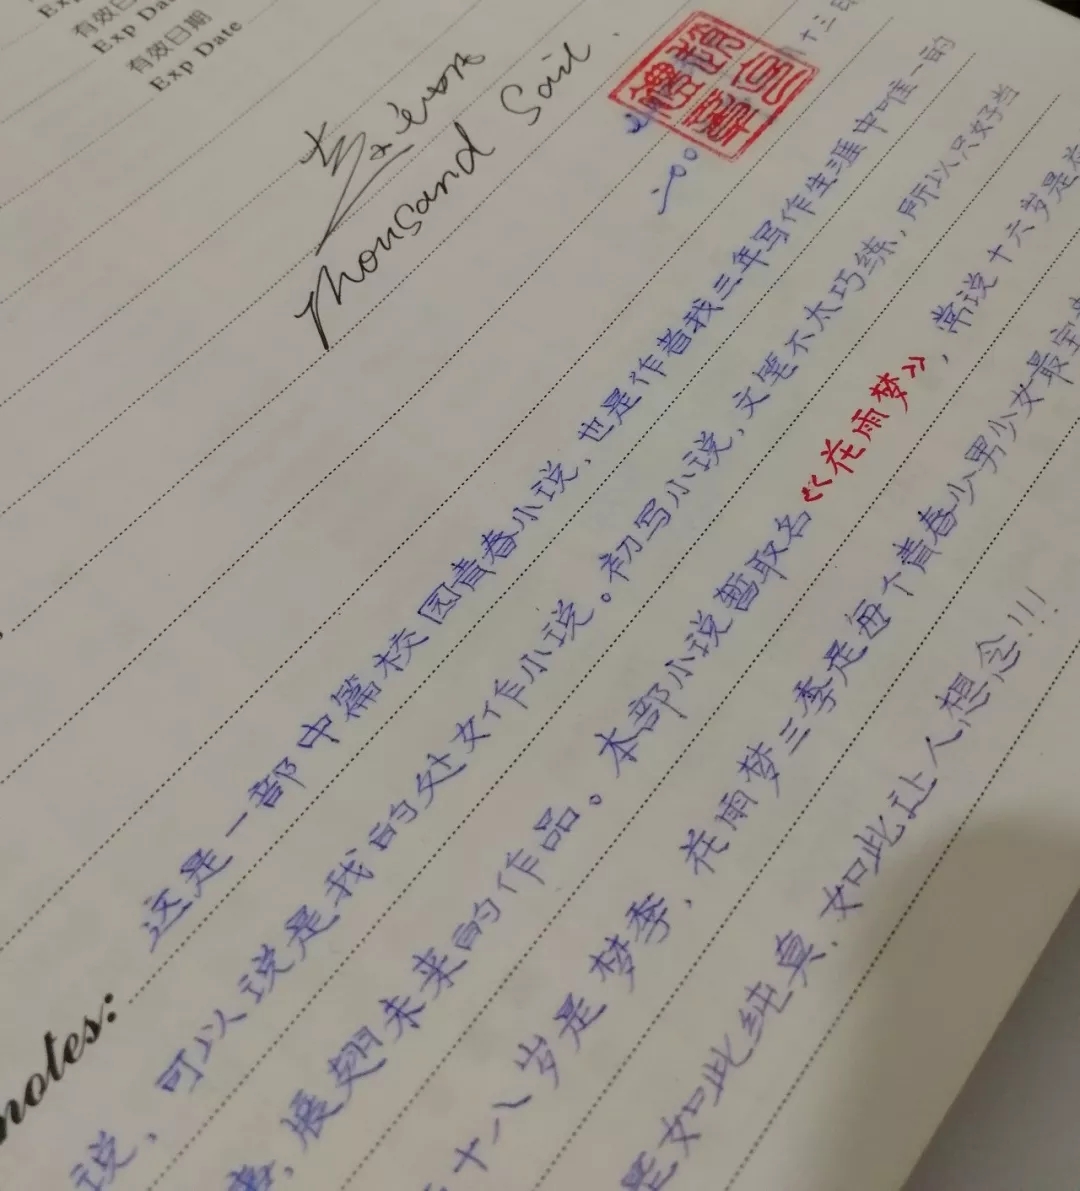 有效日期
Exp Date
有效日期
Exp Date
Thousand Sail
notes:
这是一部中篇校园青春小说,也是作者我三年写作生涯中唯一的
说,可以说是我的处女作小说。初写小说,文笔不太巧练,所以只好当
展翅未来的作品。本部小说暂取名《花雨梦》,常说十六岁是花
十八岁是梦季,花雨梦三季是每个青春少男少女最宝
是如此纯真,如此让人想念!!!